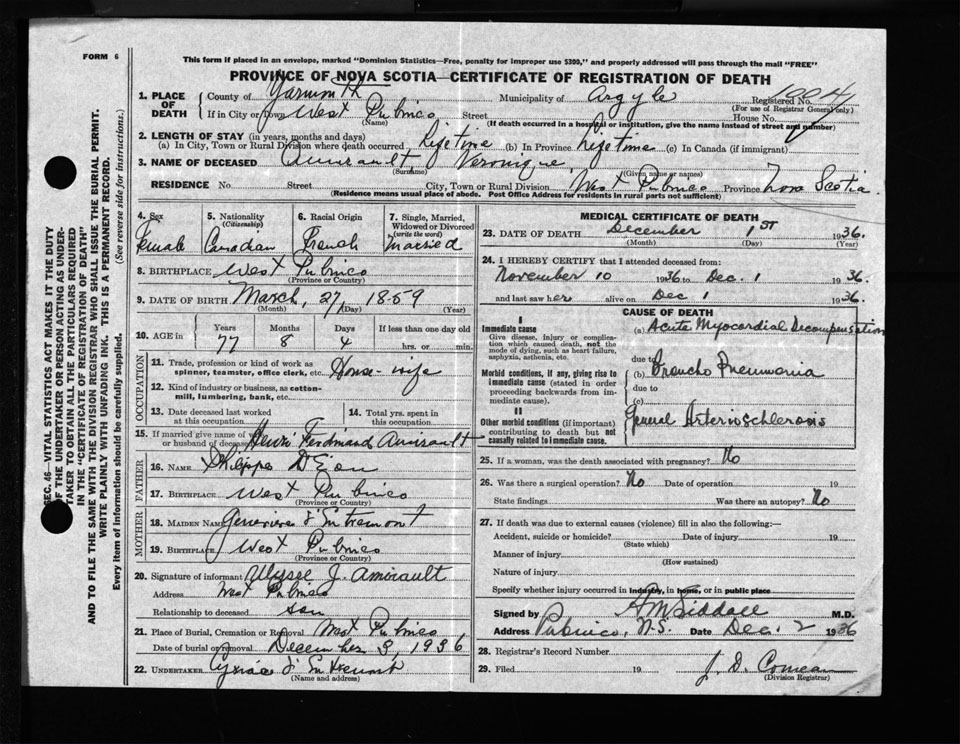 FORM 6
This form if placed in an envelope, marked "Dominion Statistics—Free, penalty for improper use $300," and properly addressed will pass through the mail "FREE"
PROVINCE OF NOVA SCOTIA—CERTIFICATE OF REGISTRATION OF DEATH
1. PLACE OF DEATH County of Yarmouth Municipality of Argyle Registered No.
(For use of Registrar General only)
If in City or Town West Pubnico Street House No.
(Name) (If death occurred in a hospital or institution, give the name instead of street and number)
2. LENGTH OF STAY (in years, months and days)
(a) In City, Town or Rural Division where death occurred Lifetime (b) In Province Lifetime (c) In Canada (if immigrant)
3. NAME OF DECEASED Amirault Veronique
(Surname) (Given name or names)
RESIDENCE No. Street City, Town or Rural Division West Pubnico Province Nova Scotia
(Residence means usual place of abode. Post Office Address for residents in rural parts not sufficient)
4. Sex Female
5. Nationality (Citizenship) Canadian
6. Racial Origin French
7. Single, Married, Widowed or Divorced (write the word) Married
8. BIRTHPLACE West Pubnico
(Province or Country)
9. DATE OF BIRTH March, 27, 1859
(Month) (Day) (Year)
10. AGE in Years Months Days If less than one day old
77 8 4 hrs. or min.
OCCUPATION
11. Trade, profession or kind of work as spinner, teamster, office clerk, etc. House-wife
12. Kind of industry or business, as cotton-mill, lumbering, bank, etc.
13. Date deceased last worked at this occupation
14. Total yrs. spent in this occupation
15. If married give name of wife or husband of deceased Henri Ferdinand Amirault
FATHER
16. NAME Philippe D'Eon
17. BIRTHPLACE West Pubnico
(Province or Country)
MOTHER
18. MAIDEN NAME Genevieve d'Entremont
19. BIRTHPLACE West Pubnico
(Province or Country)
20. Signature of informant Ulysse J. Amirault
Address West Pubnico
Relationship to deceased son
21. Place of Burial, Cremation or Removal West Pubnico
Date of burial or removal December 3, 1936
22. UNDERTAKER d'Entremont
(Name and address)
MEDICAL CERTIFICATE OF DEATH
23. DATE OF DEATH December 1ST 1936.
(Month) (Day) (Year)
24. I HEREBY CERTIFY that I attended deceased from:
November 10 1936 to Dec. 1 1936.
and last saw her alive on Dec 1 1936.
CAUSE OF DEATH
I
Immediate cause (a) Acute Myocardial Decompensation
Give disease, injury or complication which caused death, not the mode of dying, such as heart failure, asphyxia, asthenia, etc.
due to
Morbid conditions, if any, giving rise to immediate cause (stated in order proceeding backwards from immediate cause). (b) Broncho Pneumonia
due to
(c)
II
Other morbid conditions (if important) contributing to death but not causally related to immediate cause. General Arterioschlerosis
25. If a woman, was the death associated with pregnancy? No
26. Was there a surgical operation? No Date of operation 19
State findings Was there an autopsy? No
27. If death was due to external causes (violence) fill in also the following:—
Accident, suicide or homicide? Date of injury 19
(State which)
Manner of injury
(How sustained)
Nature of injury
Specify whether injury occurred in industry, in home, or in public place
Signed by A M Siddall M.D.
Address Pubnico, N.S. Date Dec. 2 1936
28. Registrar's Record Number
29. Filed 19 J. D. Comeau
(Division Registrar)
SEC. 46—VITAL STATISTICS ACT MAKES IT THE DUTY
OF THE UNDERTAKER OR PERSON ACTING AS UNDER-
TAKER TO OBTAIN ALL THE PARTICULARS REQUIRED
IN THE "CERTIFICATE OF REGISTRATION OF DEATH"
AND TO FILE THE SAME WITH THE DIVISION REGISTRAR WHO SHALL ISSUE THE BURIAL PERMIT.
WRITE PLAINLY WITH UNFADING INK. THIS IS A PERMANENT RECORD.
Every item of information should be carefully supplied. (See reverse side for instructions.)